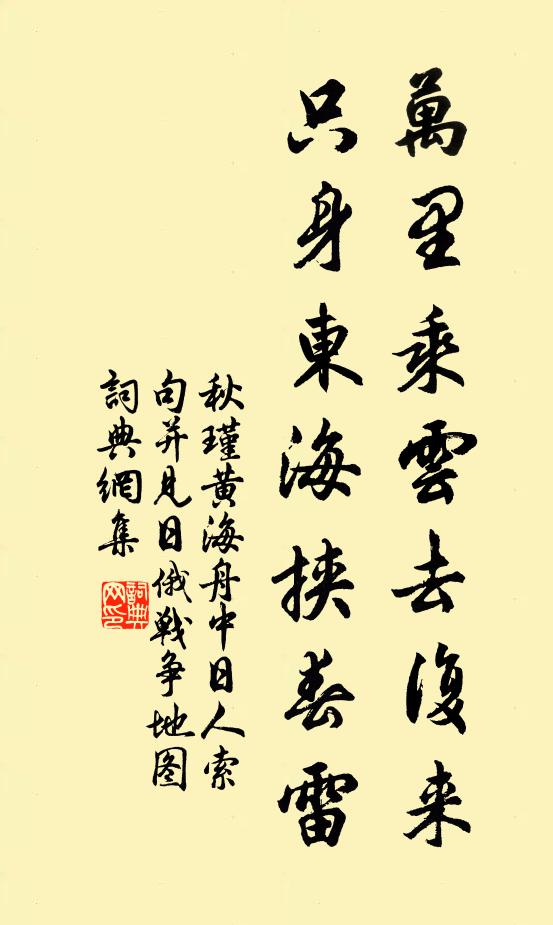 萬里乘雲去復来
只身東海挾春雷
秋瑾黄海舟中日人索
句并見日俄戰争地图
詞典網集
詞典网印